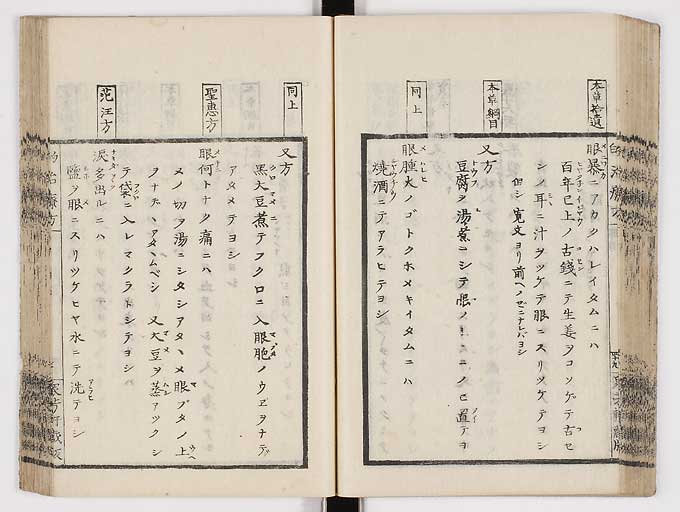 本草拾遺
眼暴ニアカクハレイタムニハ
百年已上ノ古錢ニテ生姜ヲコソゲテ古セ
ンノ耳ニ汁ヲツケテ眼ニスリツケテヨシ
但シ寛文ヨリ前ヘノゼニナレバヨシ
本草綱目
又方
豆腐ヲ湯煮ニシテ眼ノ上ニノセ置テヨシ
同上
眼腫火ノゴトクホメキイタムニハ
燒酒ニテアラヒテヨシ
同上
又方
黒大豆煮テフクロニ入眼胞ノウヱヲナデ
アタメテヨシ
聖惠方
眼何トナク痛ニハ
メノ切ヲ湯ニシタシアタヽメ眼ブタノ上
又大豆ヲ蒸アツクシ
テ袋ニ入レマクラトシテヨシ
范汪方
淚多出ルニハ
鹽ヲ眼ニスリツケヒヤ水ニテ洗テヨシ